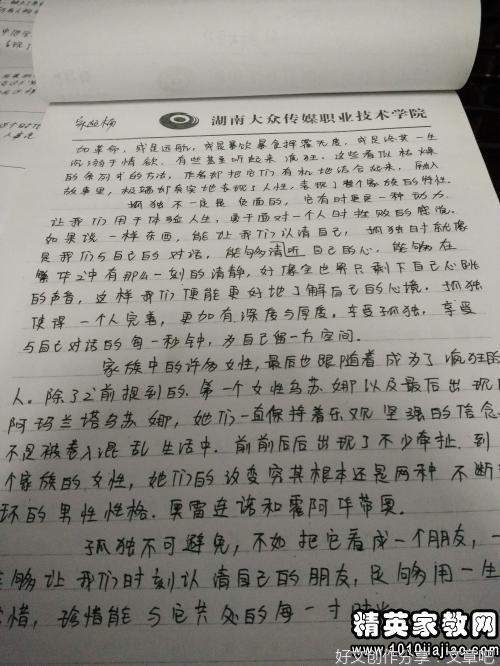 湖南大众传媒职业技术学院
如革命，或是远航，或是暴饮暴食挥霍无度，或是终其一生
沉溺于情欲。有些甚至听起来疯狂。这些看似枯燥
的条列式的方法，作者却把它们有机地结合起来，融入
故事里，极端却真实地表现了人性，表现了整个家族的特性。
孤独不一定是负面的，它有时更是一种动力，
让我们用于体验人生，勇于面对一个人时挫败的感觉。
如果说一样东西，能让我们认清自己，孤独时就像
是我们与自己的对话，能够清听自己的心，能够在
繁华之中有那么一刻的清静，好像全世界只剩下自己心跳
的声音，这样我们便能更好地了解自己的心境。孤独
使得一个人完善，更加有深度与厚度，享受孤独，享受
与自己对话的每一秒钟，为自己留一方空间。
家族中的许多女性，最后也跟随着成为了疯狂的
人。除了之前提到的第一个女性乌苏娜以及最后出现的
阿玛兰塔乌苏娜，她们一直保持着乐观坚强的信念
不是被卷入混乱生活中。前前后后出现了不少牵扯到
个家族的女性，她们的改变究其根本还是两种不断
环的男性性格。奥雷连诺和霍阿华蒂奥。
孤独不可避免，不如把它看成一个朋友，一
能够让我们时刻认清自己的朋友，足够用一生
惜，珍惜能与它共处的每一寸时光
精英家教网
www.1010jiajiao.com
好文创作分享-文章吧